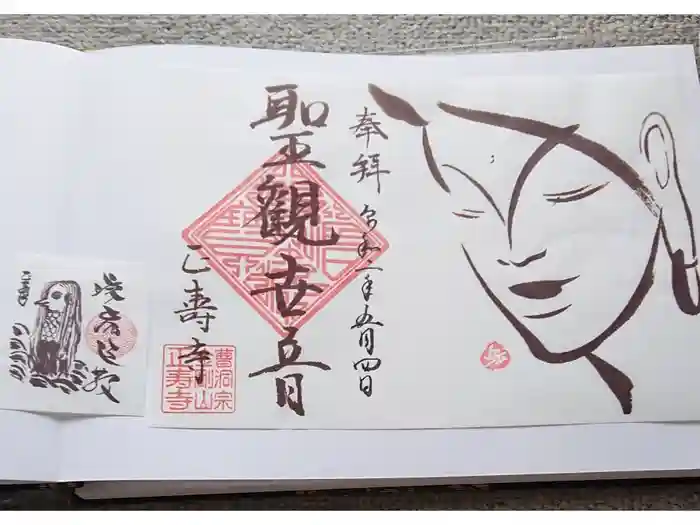 奉拝
令和二年五月四日
聖觀世音
正壽寺
曹洞宗
正寿寺
疫病退散